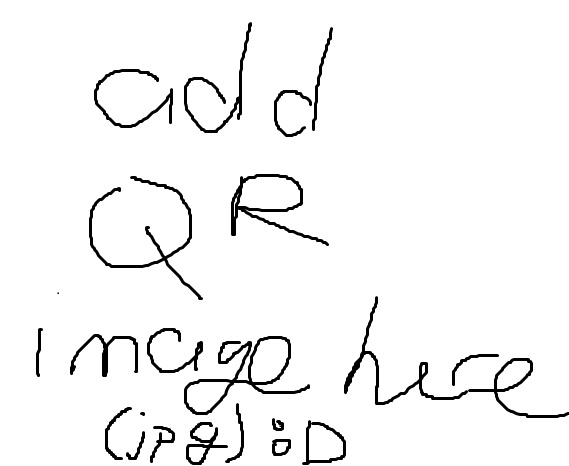 add
QR
image here
(jpg) :D